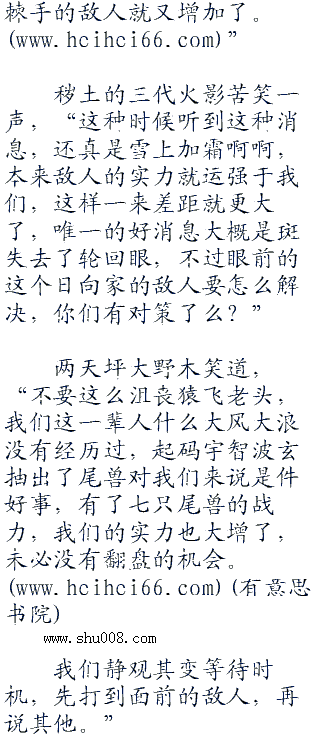 棘手的敌人就又增加了。
(www.hcihci66.com)”
秽土的三代火影苦笑一
声，“这种时候听到这种消
息，还真是雪上加霜啊啊，
本来敌人的实力就运强于我
们，这样一来差距就更大
了，唯一的好消息大概是斑
失去了轮回眼，不过眼前的
这个日向家的敌人要怎么解
决，你们有对策了么？”
两天坪大野木笑道，
“不要这么沮丧猿飞老头，
我们这一辈人什么大风大浪
没有经历过，起码宇智波玄
抽出了尾兽对我们来说是件
好事，有了七只尾兽的战
力，我们的实力也大增了，
未必没有翻盘的机会。
(www.hcihci66.com)(有意思
书院)
www.shu008.com
我们静观其变等待时
机，先打到面前的敌人，再
说其他。”